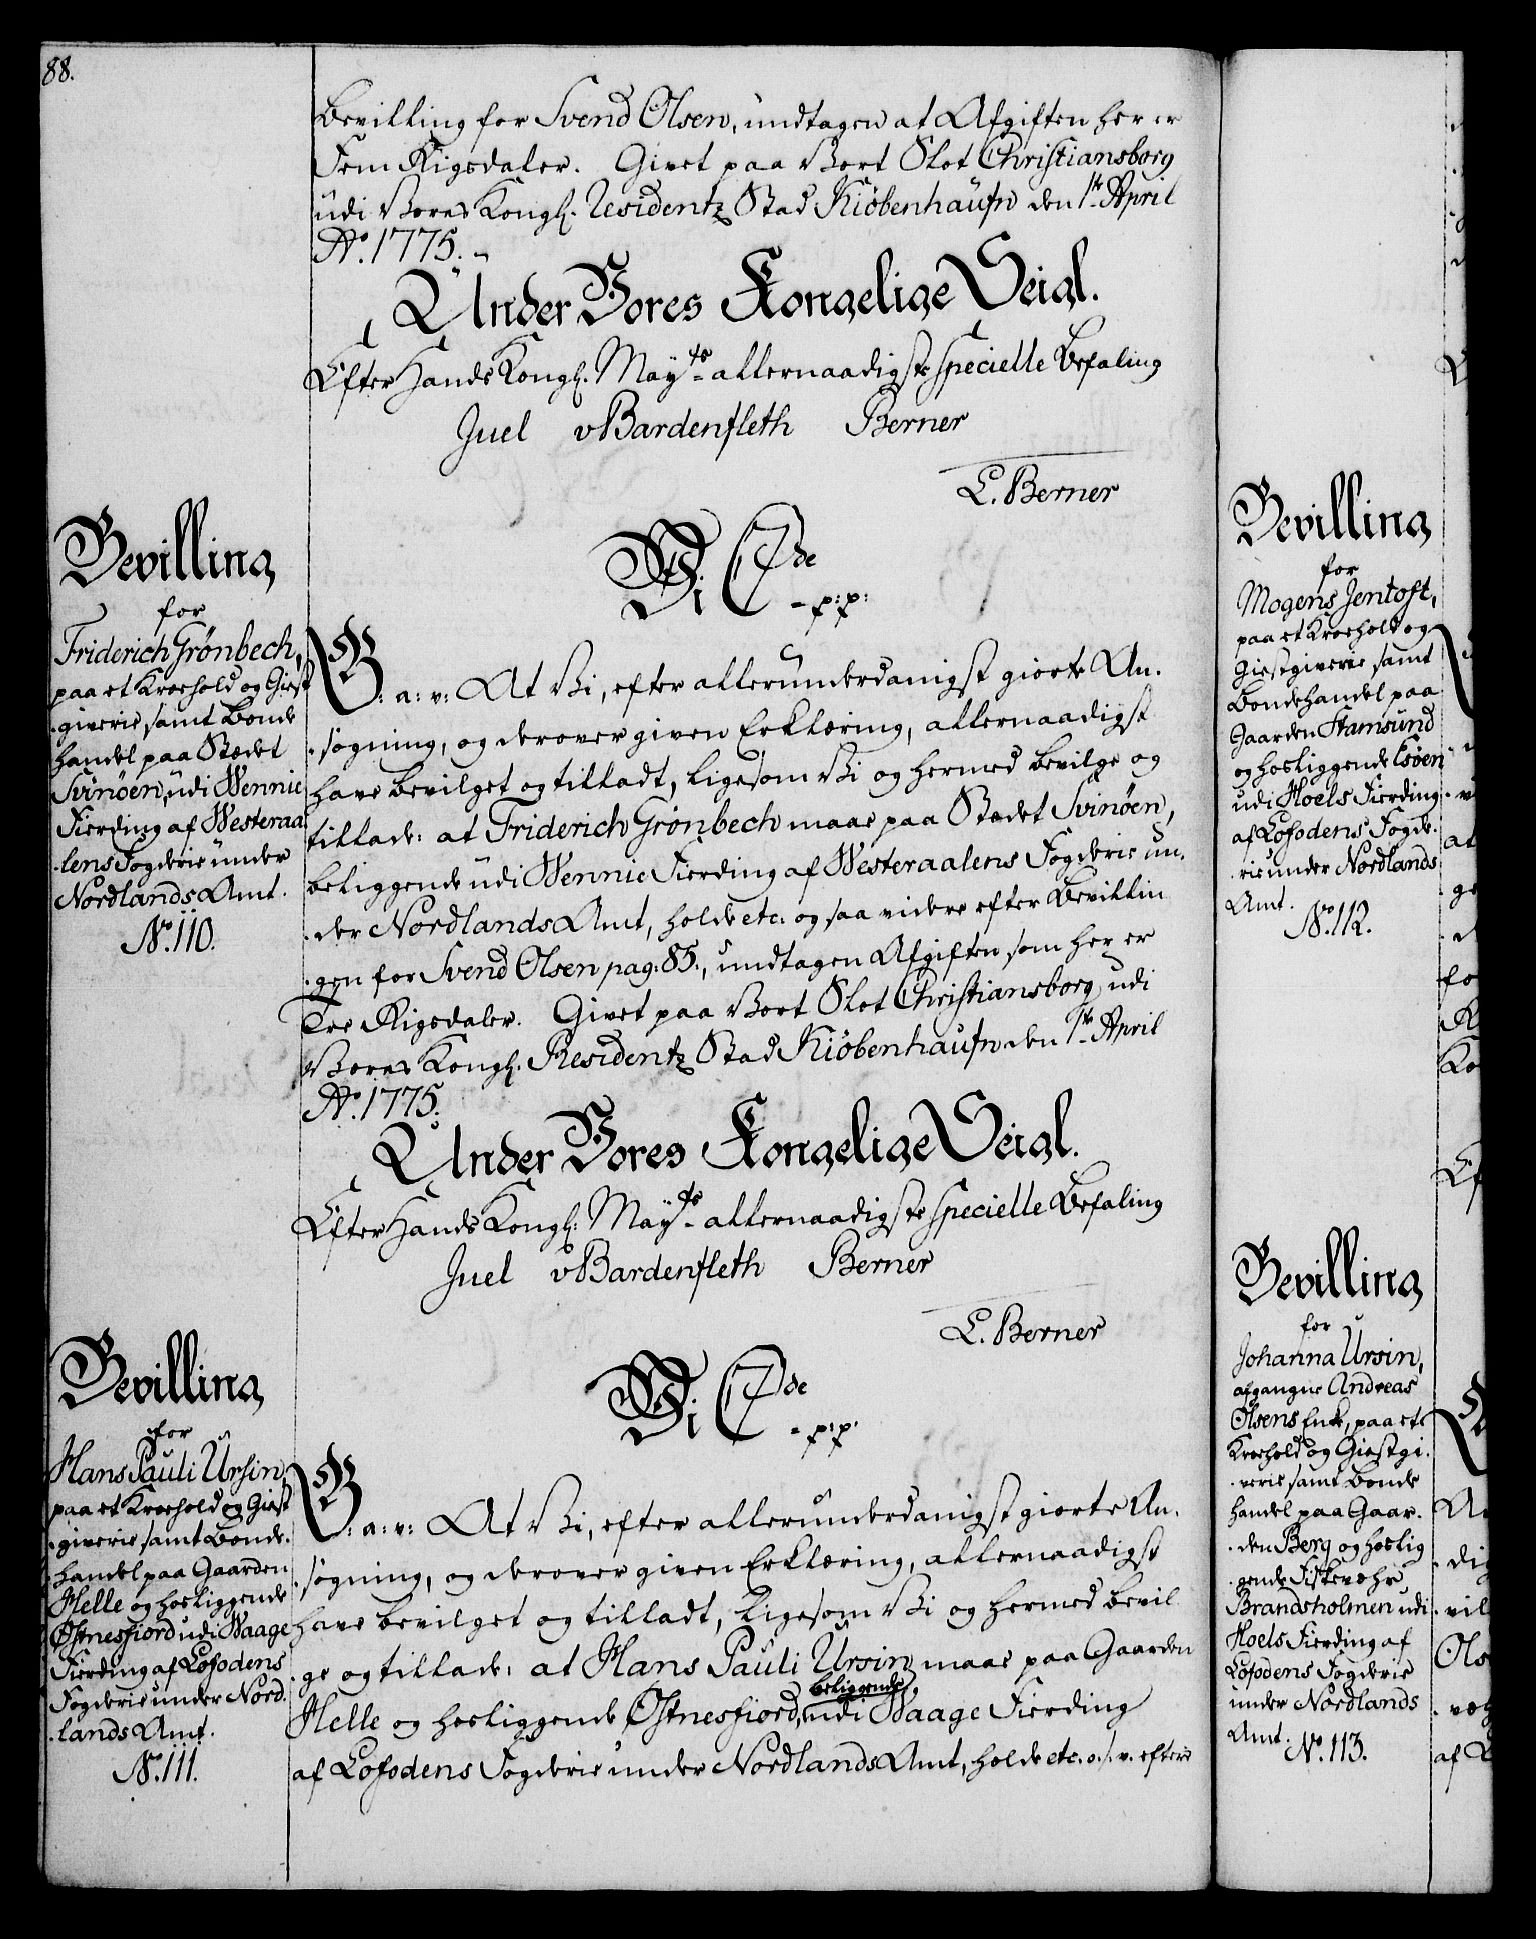 88.
Bevilling for Svend Olsen, undtagen at Afgiften her er
Fem Rigsdaler. Givet paa Vort Slot Christiansborg
udi Vores Kongl. Residentz Stad Kiöbenhaufn den 1te April
Ao. 1775.
Under Vores Kongelige Seigl.
Efter Hands Kongl. Mayts allernaadigste specielle Befaling
Juel vBardenfleth Berner
L. Berner
Bevilling
for
Friderich Grönbech,
paa et Kroehold og Giest
-giverie samt Bonde
handel paa Stædet
Svinöen, udi Wennie
Fierding af Westeraa
-lens Fogderie under
Nordlands Amt.
No. 110.
Vi C 7de
- p: p:
G: a: v: At Vi, efter allerunderdanigst giorte An-
-søgning, og derover given Erklæring, allernaadigst
have bevilget og tilladt, ligesom Vi og hermed bevilge og
tillade: at Friderich Grönbech maae paa Stædet Svinöen,
beliggende udi Wennie Fierding af Westeraalens Fogderie un-
-der Nordlands Amt, holde etc. og saa videre efter Bevillin
-gen for Svend Olsen pag: 85., undtagen Afgiften som her er
Tre Rigsdaler. Givet paa Vort Slot Christiansborg udi
Vores Kongl. Residentz Stad Kiöbenhaufn den 1te April
Ao. 1775.
Under Vores Kongelige Seigl.
Efter Hands Kongl: Mayts allernaadigste specielle Befaling
Juel vBardenfleth Berner
L. Berner
Bevilling
for
Hans Pauli Ursin,
paa et Kroehold og Giest
-giverie samt Bonde-
-handel paa Gaarden
Helle og hosliggende
Östnesfiord udi Waage
Fierding af Lofodens
Fogderie under Nord-
-lands Amt.
No. 111.
Vi C 7de
- p: p:
G: a: v: At Vi, efter allerunderdanigst giorte An-
-søgning, og derover given Erklæring, allernaadigst
have bevilget og tilladt, ligesom Vi og hermed bevil
-ge og tillade: at Hans Pauli Ursin maae paa Gaarden
beliggende
Helle og hosliggende Östnesfiord, udi Waage Fierding
af Lofodens Fogderie under Nordlands Amt, holde etc. o. s. v. efter
Bevilling
for
Mogens Jentoft,
paa et Kroehold og
Giestgiverie samt
Bondehandel paa
Gaarden Stamsund
og hosliggende Esöen
udi Hoels Fierding
af Lofodens Fogde-
-rie under Nordlands
Amt.
No. 112.
Bevilling
for
Johanna Ursin,
afgangne Andreas
Olsens Enke, paa et
Kroehold og Giestgi-
-verie samt Bonde
handel paa Gaar-
-den Berg og hoslig
-gende Fiskevæhr
Brandsholmen udi
Hoels Fierding af
Lofodens Fogderie
under Nordlands
Amt.
No. 113.